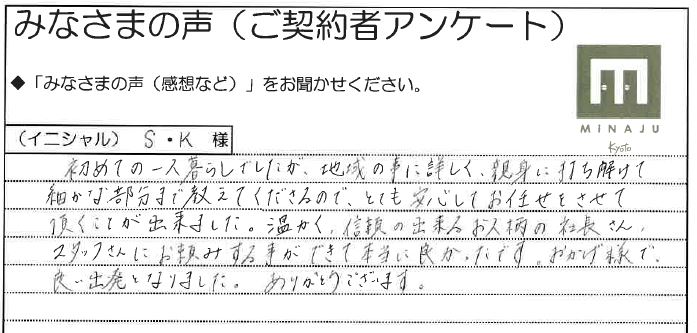 みなさまの声（ご契約者アンケート）
◆「みなさまの声（感想など）」をお聞かせください。
MINAJU
Kyoto
（イニシャル） S・K 様
初めての一人暮らしでしたが、地域の事に詳しく、親身に打ち解けて
細かな部分まで教えてくださるので、とても安心してお任せをさせて
頂くことが出来ました。温かく、信頼の出来るお人柄の社長さん、
スタッフさんにお頼みする事ができて本当に良かったです。おかげ様で、
良い出発となりました。 ありがとうございます。